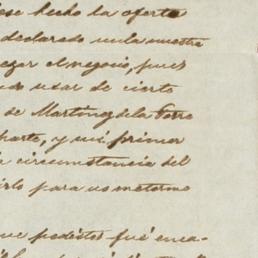 ese hecho la oferta
declarado en la nuestra
egar el negocio, pues
usar de cierto
de Martinez de la Torre
parte, y mi primer
circunstancia del
irlo para no meterme
que pedistes fué enca-